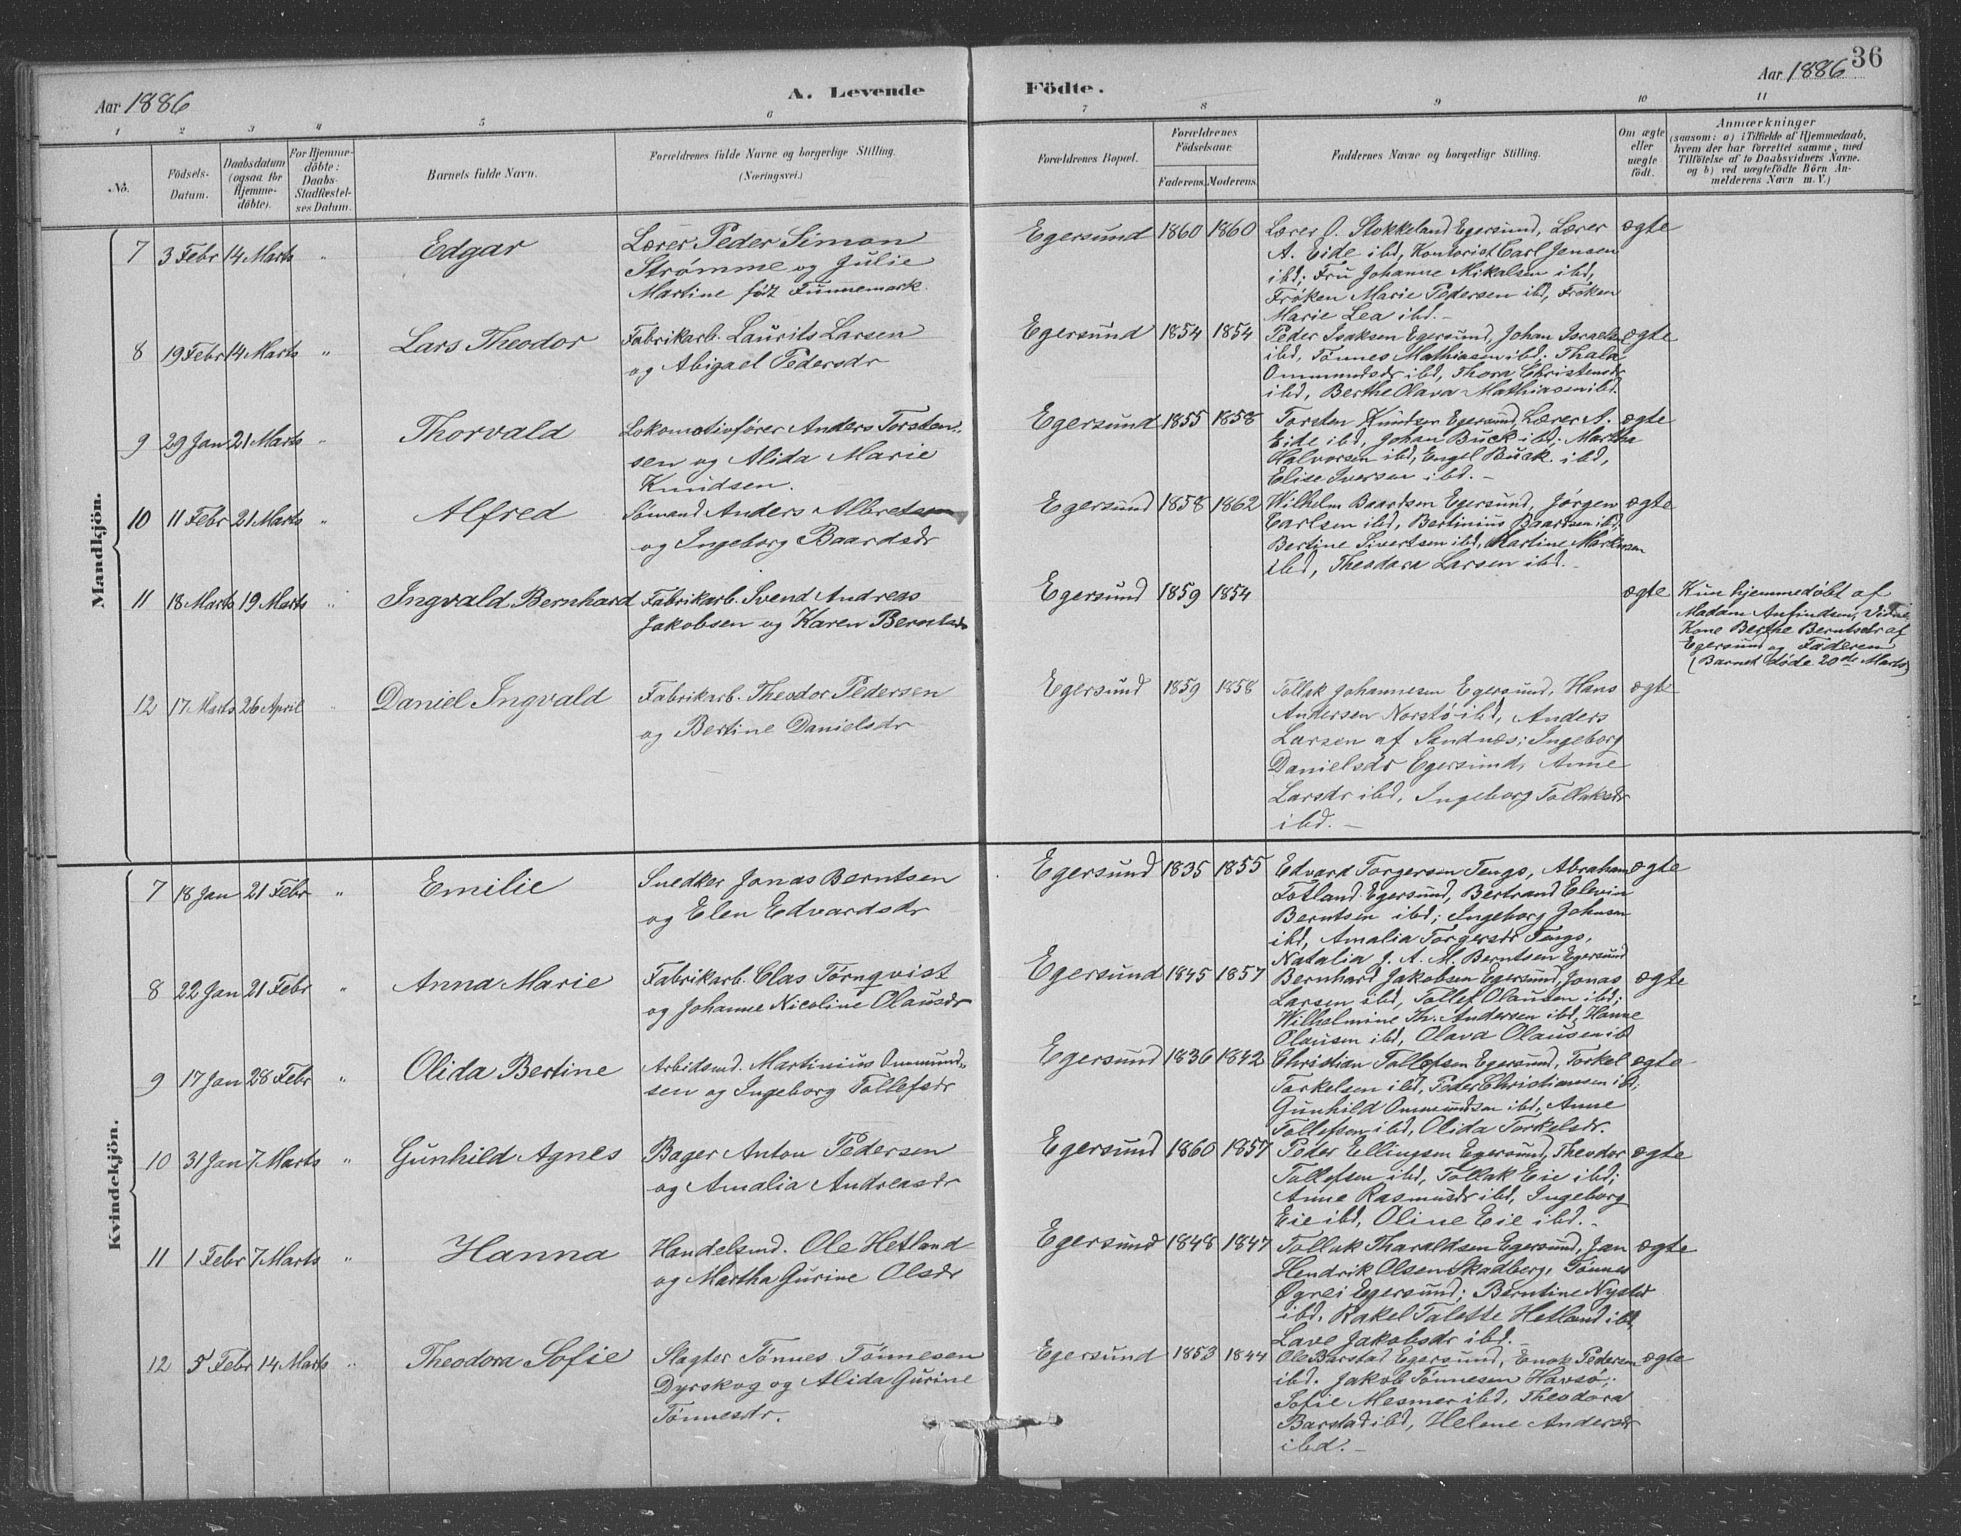 36
Aar 1886
A. Levende Födte.
Aar 1886
1 2 3 4 5 6 7 8 9 10 11
No.
Födsels-
Datum.
Daabsdatum
(ogsaa for
Hjemme-
døbte).
For Hjemme-
döbte:
Daabs-
Stadfæstel-
ses Datum.
Barnets fulde Navn.
Forældrenes fulde Navne og borgerlige Stilling.
(Næringsvei.)
Forældrenes Bopæl.
Forældrenes
Födselsaar.
Faderens. Moderens.
Faddernes Navne og borgerlige Stilling.
Om ægte
eller
uægte
födt.
Anmærkninger
(saasom: a) i Tilfælde af Hjemmedaab,
hvem der har forrettet samme, med
Tilföielse af to Daabsvidners Navne.
og b) ved uægtefödte Börn An-
melderens Navn m. V.)
Mandkjön.
7 3 Febr 14 Marts " Edgar
Lærer Peder Simon
Strømme og Julie
Martine født Funnemark.
Egersund 1860 1860
Lærer O. Stokkeland Egersund, Lærer
A. Eide ibd, Kontorist Carl Jensen
ibd; Fru Johanne Mikalsen ibd,
Frøken Marie Pedersen ibd, Frøken
Marie Lea ibd. -
ægte
8 19 Febr 14 Marts " Lars Theodor
Fabrikarb. Laurits Larsen
og Abigael Pedersdr
Egersund 1854 1854
Peder Isaksen Egersund, Johan Israelsen
ibd, Tønnes Mathiasen ibd; Thala
Ommundsdr ibd, Thora Christensdr
ibd, Berthe Olava Mathiasen ibd.
ægte
9 29 Jan 21 Marts " Thorvald
Lokomotivfører Anders Torsten-
sen og Alida Marie
Knudsen.
Egersund 1855 1858
Torsten Knudsen Egersund, Lærer A.
Eide ibd, Johan Buck ibd; Martha
Halvorsen ibd, Engel Buck ibd,
Elise Iversen ibd. -
ægte
10 11 Febr 21 Marts " Alfred
Sømand Anders Albretsen
og Ingeborg Baardsdr
Egersund 1858 1862
Wilhelm Baardsen Egersund, Jørgen
Carlsen ibd, Bertinius Baardsen ibd,
Bertine Sivertsen ibd, Martine
ibd, Theodora Larsen ibd. -
ægte
11 18 Marts 19 Marts " Ingvald Bernhard
Fabrikarb. Svend Andreas
Jakobsen og Karen Berntsdr
Egersund 1859 1854
ægte
Kun hjemmedøbt af
Madam Anfindsen, Vidne
Kone Berthe Berntsdr af
Egersund og Faderen
(Barnet døde 20de Marts)
12 17 Marts 26 April " Daniel Ingvald
Fabrikarb. Theodor Pedersen
og Bertine Danielsdr
Egersund 1859 1858
Tollak Johannesen Egersund, Hans
Andersen Norstø ibd, Anders
Larsen af Sandnæs; Ingeborg
Danielsdr Egersund, Anne
Larsdr ibd, Ingeborg Tollaksdr
ibd. -
ægte
Kvindekjön.
7 18 Jan 21 Febr " Emilie
Snedker Jonas Berntsen
og Elen Edvardsdr
Egersund 1835 1855
Edvard Torgersen Tengs, Abraham
Fotland Egersund, Bertrand Elevin
Berntsen ibd; Ingeborg Johnsen
ibd, Amalia Torgersdr Tengs,
Natalia J. A. M. Berntsen Egersund
ægte
8 22 Jan 21 Febr " Anna Marie
Fabrikarb. Clas Törnqvist
og Johanne Nicoline Olausdr
Egersund 1845 1857
Bernhard Jakobsen Egersund, Jonas
Larsen ibd, Tollef Olausen ibd;
Wilhelmine Th. Andersen ibd, Hanne
Olausen ibd, Olava Olausen ibd
ægte
9 17 Jan 28 Febr " Olida Bertine
Arbidsmd. Martinius Ommund-
sen og Ingeborg Tollefsdr
Egersund 1836 1842
Christian Tollefsen Egersund, Torkel
Torkelsen ibd, Peder Christiansen ibd;
Gunhild Ommundsen ibd, Anne
Tollefsen ibd, Olida Torkelsdr.
ægte
10 31 Jan 7 Marts " Gunhild Agnes
Bager Anton Pedersen
og Amalia Andreasdr
Egersund 1860 1857
Peder Ellingsen Egersund, Theodor
Tollefsen ibd, Tollak Eie ibd;
Anne Rasmusdr ibd, Ingeborg
Eie ibd, Oline Eie ibd. -
ægte
11 1 Febr 7 Marts " Hanna
Handelsmd. Ole Hetland
og Martha Gurine Olsdr
Egersund 1848 1847
Tollak Tharaldsen Egersund, Jan
Hendrik Olsen Skadberg, Tønnes
Øgrei Egersund; Berntine Nysted
ibd, Rakel Talette Hetland ibd,
Lave Jakobsdr ibd. -
ægte
12 5 Febr 14 Marts " Theodora Sofie
Slagter Tönnes Tönnesen
Dyrskog og Alida Gurine
Tönnesdr.
Egersund 1853 1844
Ole Barstad Egersund, Enok Pedersen
ibd. Jakob Tønnesen Havsø;
Sofie Mesmer ibd, Theodora
Barstad ibd, Helene Andersdr
ibd. -
ægte